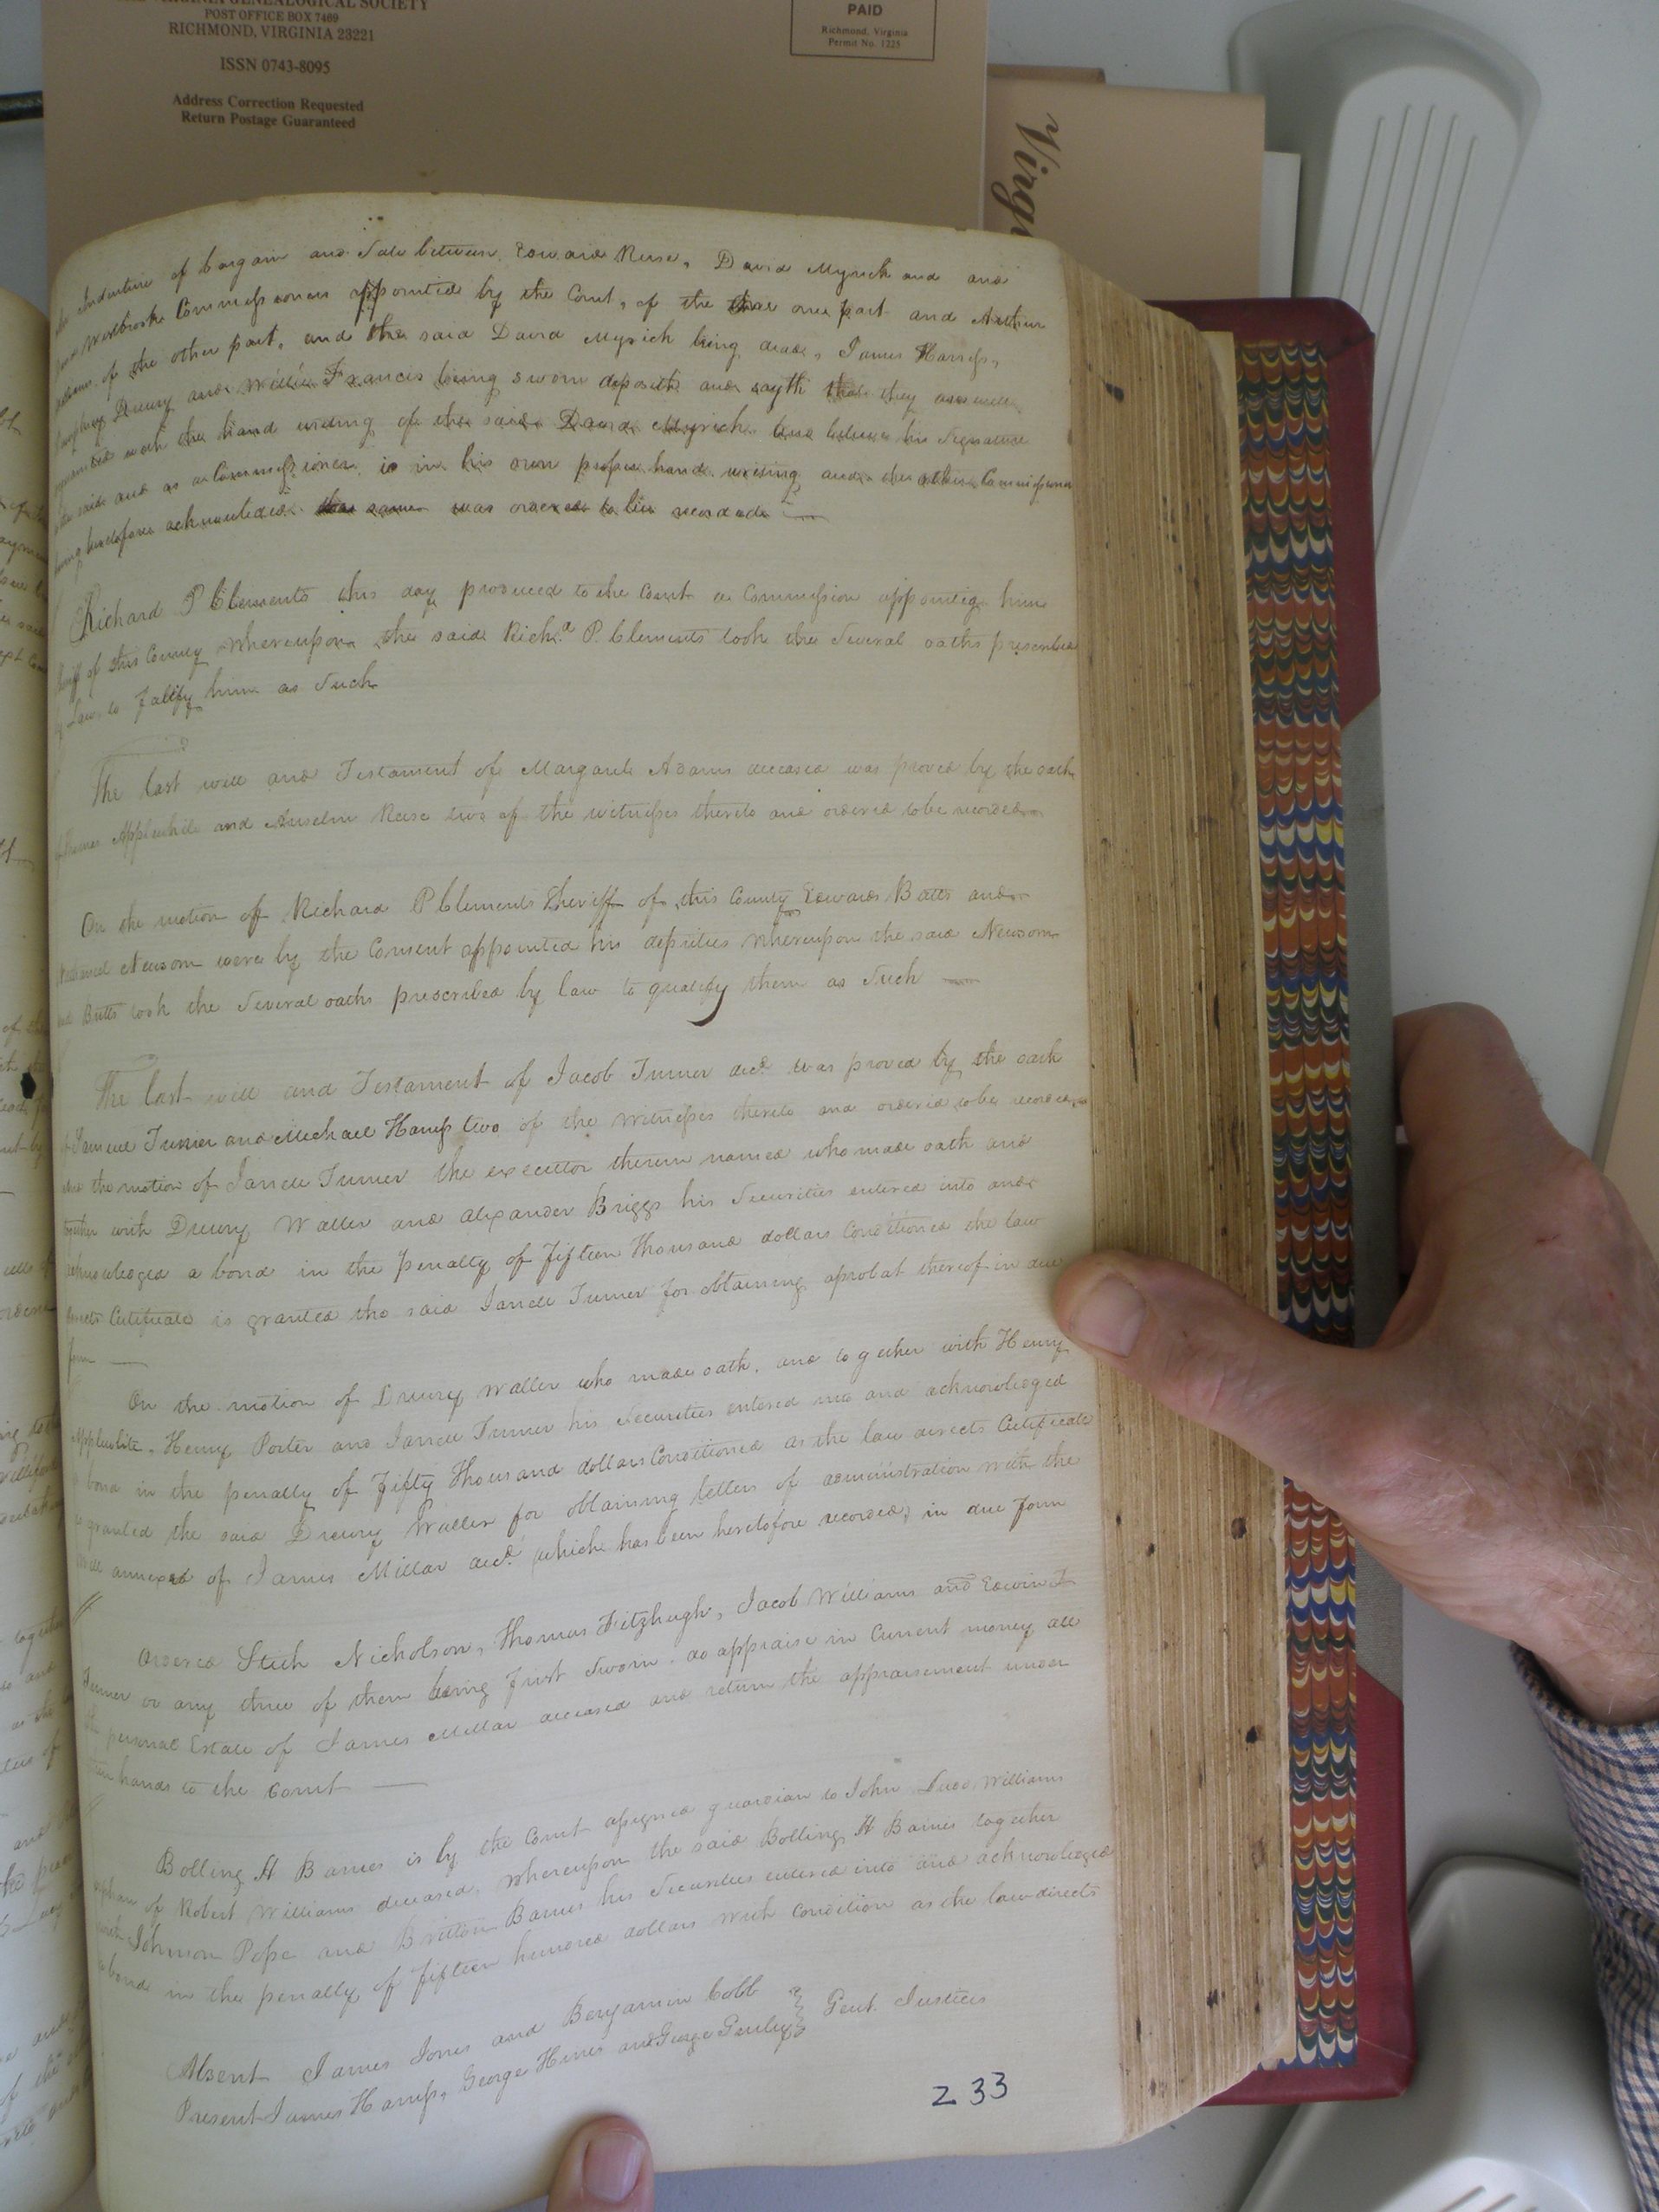 VIRGINIA GENEALOGICAL SOCIETY
POST OFFICE BOX 7469
RICHMOND, VIRGINIA 23221
ISSN 0743-8095
Address Correction Requested
Return Postage Guaranteed
PAID
Richmond, Virginia
Permit No. 1225
Virg
Indenture of bargain and Sale between Edward Reese, David Myrick and and
Westbrook Commissioners appointed by the Court, of the one part and Arthur
of the other part, and the said David Myrick being dead, James Harriss,
Drewry and Willie Francis being sworn deposith and sayth that they are well
with the hand writing of the said David Myrick and believe his Signature
and as a Commissioner is in his own proper hand writing and the other Commissioners
having heretofore acknowledged the same was ordered to be recorded
Richard P Clements this day produced to the Court a Commission appointig him
Sheriff of this County whereupon the said Richd P. Clements took the Several oaths prescribed
by Law to falify him as Such
The last will and Testament of Margarett Adams deceased was proved by the oath
Applewhite and Anselm Reese two of the witnesses thereto and ordered to be recorded
On the motion of Richard P Clements Sheriff of this County Edwards Butts and
Newsom were by the Consent appointed his deputies whereupon the said Newsom
and Butts took the Several oaths prescribed by law to qualify them as Such
The last will and Testament of Jacob Turner decd was proved by the oath
of Samuel Turner and Michael Harriss two of the witnesses thereto and ordered to be recorded
and the motion of Jarrell Turner the executor therein named who made oath and
together with Drewry Waller and Alexander Briggs his Securities entered into and
acknowledged a bond in the penalty of fifteen thousand dollars Conditioned the law
directs Certificate is granted the said Jarrell Turner for obtaining aprobat thereof in due
form
On the motion of Drewry Waller who made oath, and together with Henry
Applewhite, Henry Porter and Jarrell Turner his Securities entered into and acknowledged
a bond in the penalty of fifty thousand dollars Conditioned as the law directs Certificate
is granted the said Drewry Waller for obtaining letters of administration with the
will annexed of James Millar decd (which has been heretofore recorded) in due form
Ordered Stith Nicholson, Thomas Fitzhugh, Jacob Williams and Edwin
Turner or any three of them being first Sworn do appraise in Current money all
the personal Estate of James Millar deceased and return the appraisement under
their hands to the Court
Bolling H Barnes is by the Court assigned guardian to John Williams
orphan of Robert Williams deceased, whereupon the said Bolling H Barnes together
with Johnson Pope and Britton Barnes his Securities entered into and acknowledged
a bond in the penalty of fifteen hundred dollars with Condition as the law directs
Absent James Jones and Benjamin Cobb
Present James Harriss, George Hines and George Gurley Gent. Justices
233